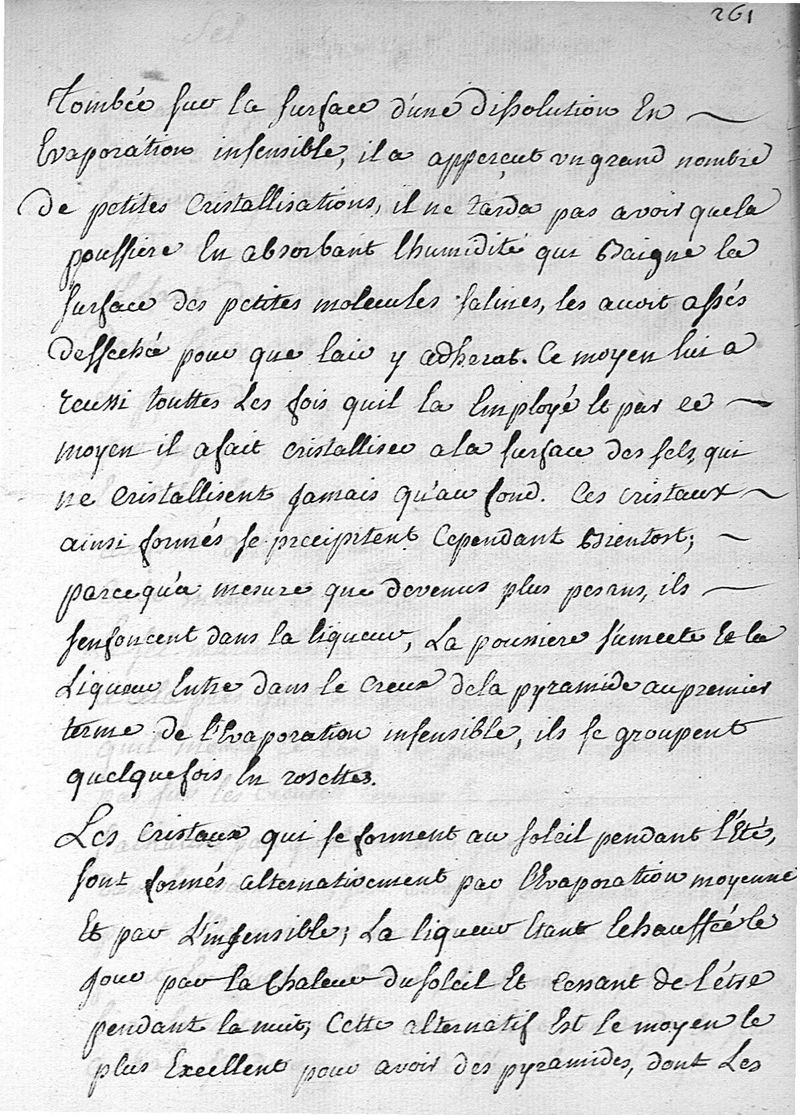 261
Tombée sur la surface d'une dissolution En
Evaporation insensible, il a apperçut un grand nombre
de petites Cristallisations, il ne tarda pas avoir que la
poussiere En absorbant l'humidité qui Baigne la
surface des petites molecules salines, les avoit assés
desseché pour que lair y adherat. Ce moyen lui a
reussi touttes Les fois quil la Employé Et par ce
moyen il afait cristalliser ala surface des sels, qui
ne Cristallisent Jamais qu'au fond. Ces cristaux
ainsi formés se prcipitent Cependant Bientost;
parcequ'a mesure que devenus plus pesrns, ils
senfoncent dans la liqueur, La poussiere s'umecte Et la
Liqueur Entre dans le Creux dela pyramide au premier
terme de l'Evaporation insensible, ils se groupent
quelquefois En rosettes.
Les Cristaux qui se forment au soleil pendant l'Eté,
sont formés alternativement par l'Evaporation moyenne
Et par L'insensible; La liqueur Etant Echauffée le
jour par la Chaleur du soleil Et Cessant de l'être
pendant la nuit; Cette alternatif Est le moyen le
plus Excellent pour avoir des pyramides, dont Les